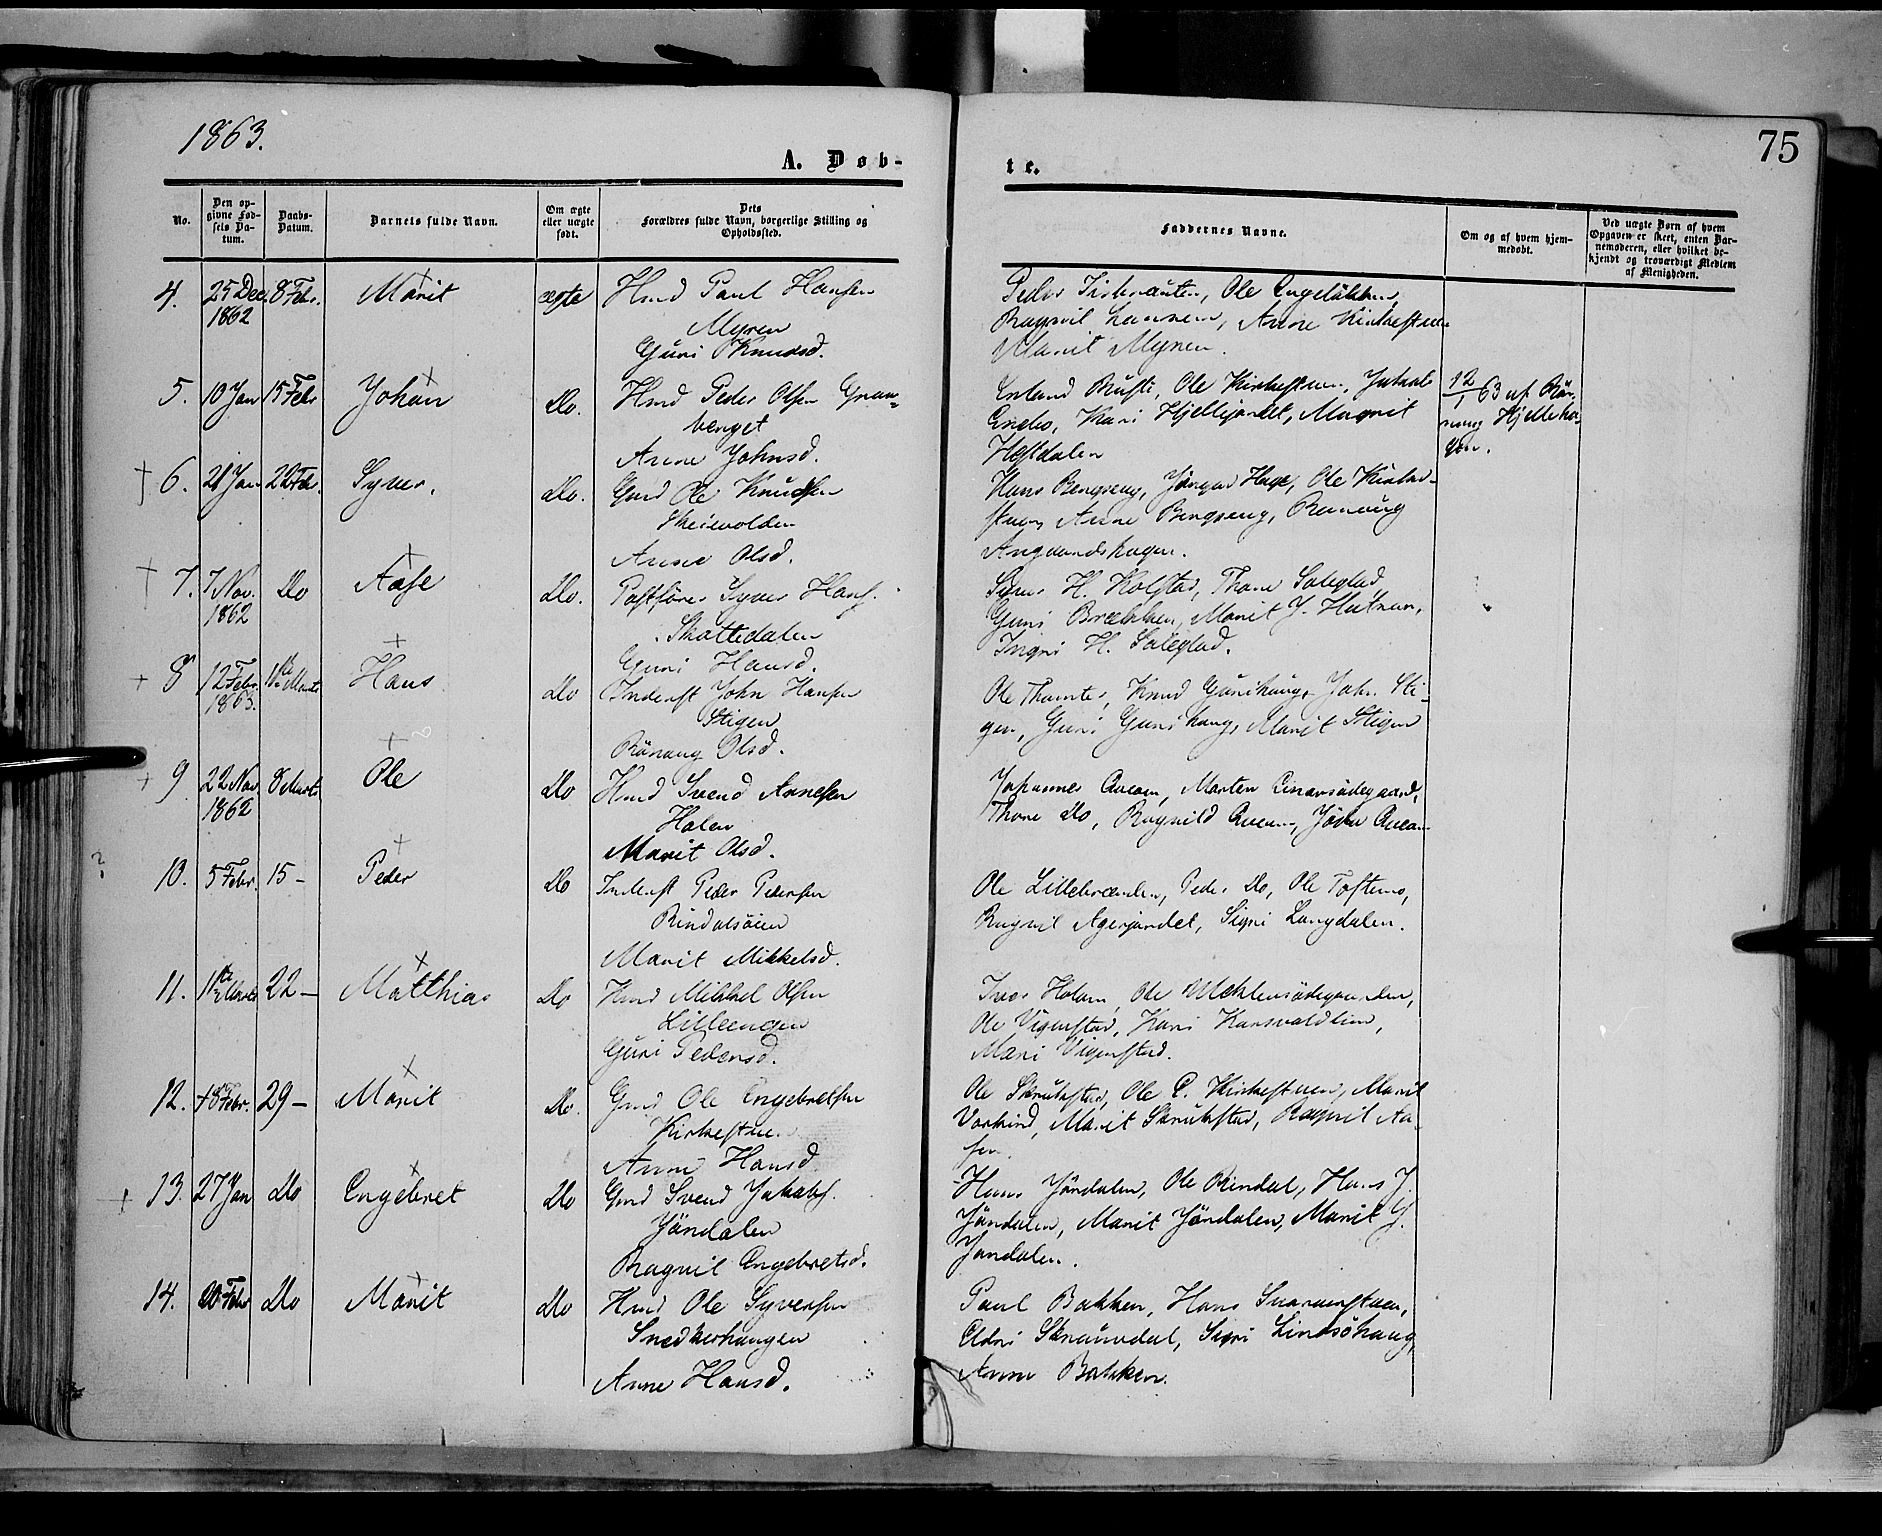 1863.
A. Døb-
te.
75
No.
Den op-
givne Fød-
sels Da-
tum.
Daabs-
Datum.
Barnets fulde Navn.
Om ægte
eller uægte
født.
Dets
Forældres fulde Navn, borgerlige Stilling og
Opholdssted.
Faddernes Navne.
Om og af hvem hjem-
medøbt.
Ved uægte Børn af hvem
Opgaven er skeet, enten Bar-
nemoderen, eller hvilket be-
kjendt og troværdigt Medlem
af Menigheden.
4. 25 Dec. 1862 8 Febr. Marit ægte Hmd Paul Hansen
Myren
Guri Knudsd.
Peder Ole
Anne Kirkestuen
Marit Myren.
5. 10 Jan 15 Febr Johan Do. Hmd Peder Olsen Gran-
berget
Anne Johnsd.
Erland Ole Kirkestuen, Jakob
Kari Hjellejordet, Magnit
Hestdalen
12/1 63 af Rön-
naug Hjelleha-
gen.
6. 21 Jan 22 Febr. Syver. Do. Gmd Ole Knudsen
Skeievolden
Anne Olsd.
Hans Ole Kirke-
stuen Anne
7. 7 Nov. 1862 Do Aase Do. Postfører Syver Hans.
Skottedalen
Guri Hansd.
Syver H. Kolstad, Thore
Guri Brækken, Marit J.
Ingri H.
8 12 Febr. 1863. 1ste Marts Hans Do Inderst John Hansen
Stigen
Rönaug Olsd.
Ole Knud Gurihaug, John Sti-
gen, Guri Gurihaug, Marit Stigen
9 22 Nov 1862 8 Marts Ole Do Hmd Svend Arnesen
Holen
Marit Olsd.
Johannes Morten
Thore Do, Ragnild
10. 5 Febr. 15 - Peder Do Inderst Peder Pedersen
Rindalsøien
Marit Mikkelsd.
Ole Peder Do, Ole Toftemo,
Ragnil Agerjordet, Sigri Langdalen.
11. 1ste Marts 22 - Matthias Do Hmd Mikkel Olsen
Lilleengen
Guri Pedersd.
Iver Holam, Ole
Ole Vigerstad, Kari
Mari Vigerstad.
12. 18 Febr. 29 - Marit Do. Gmd Ole Engebretsen
Kirkestuen
Anne Hansd.
Ole Skrukstad, Ole E. Kirkestuen, Marit
Vorkind, Marit Skrukstad, Ragnil Aa-
sen.
13. 27 Jan Do Engebret Do Gmd Svend Jakobs.
Jöndalen
Ragnil Engebretsd.
Hans Jöndalen, Ole Rindal, Hans J.
Jöndalen, Marit Jöndalen, Marit J.
Jöndalen.
14. 20 Febr Do Marit Do Hmd Ole Syversen
Snedkerhaugen
Anne Hansd.
Paul Bakken, Hans
Eldri Skramdal, Sigri Lindsöhaug,
Anne Bakken.